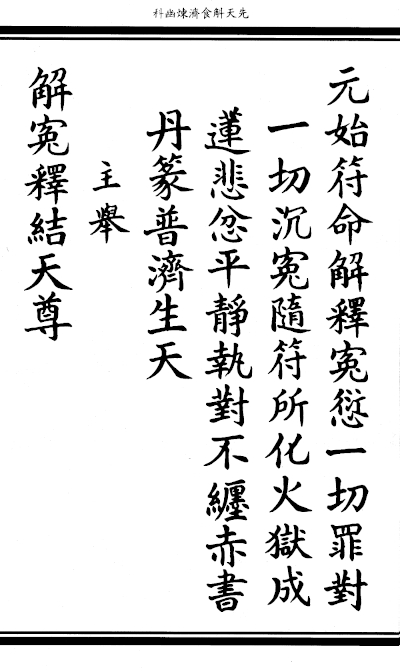 先天斛食濟煉幽科
元始符命解釋冤愆一切罪對
一切沉冤隨符所化火獄成
蓮悲忿平靜執對不纏赤書
丹篆普濟生天
主舉
解冤釋結天尊